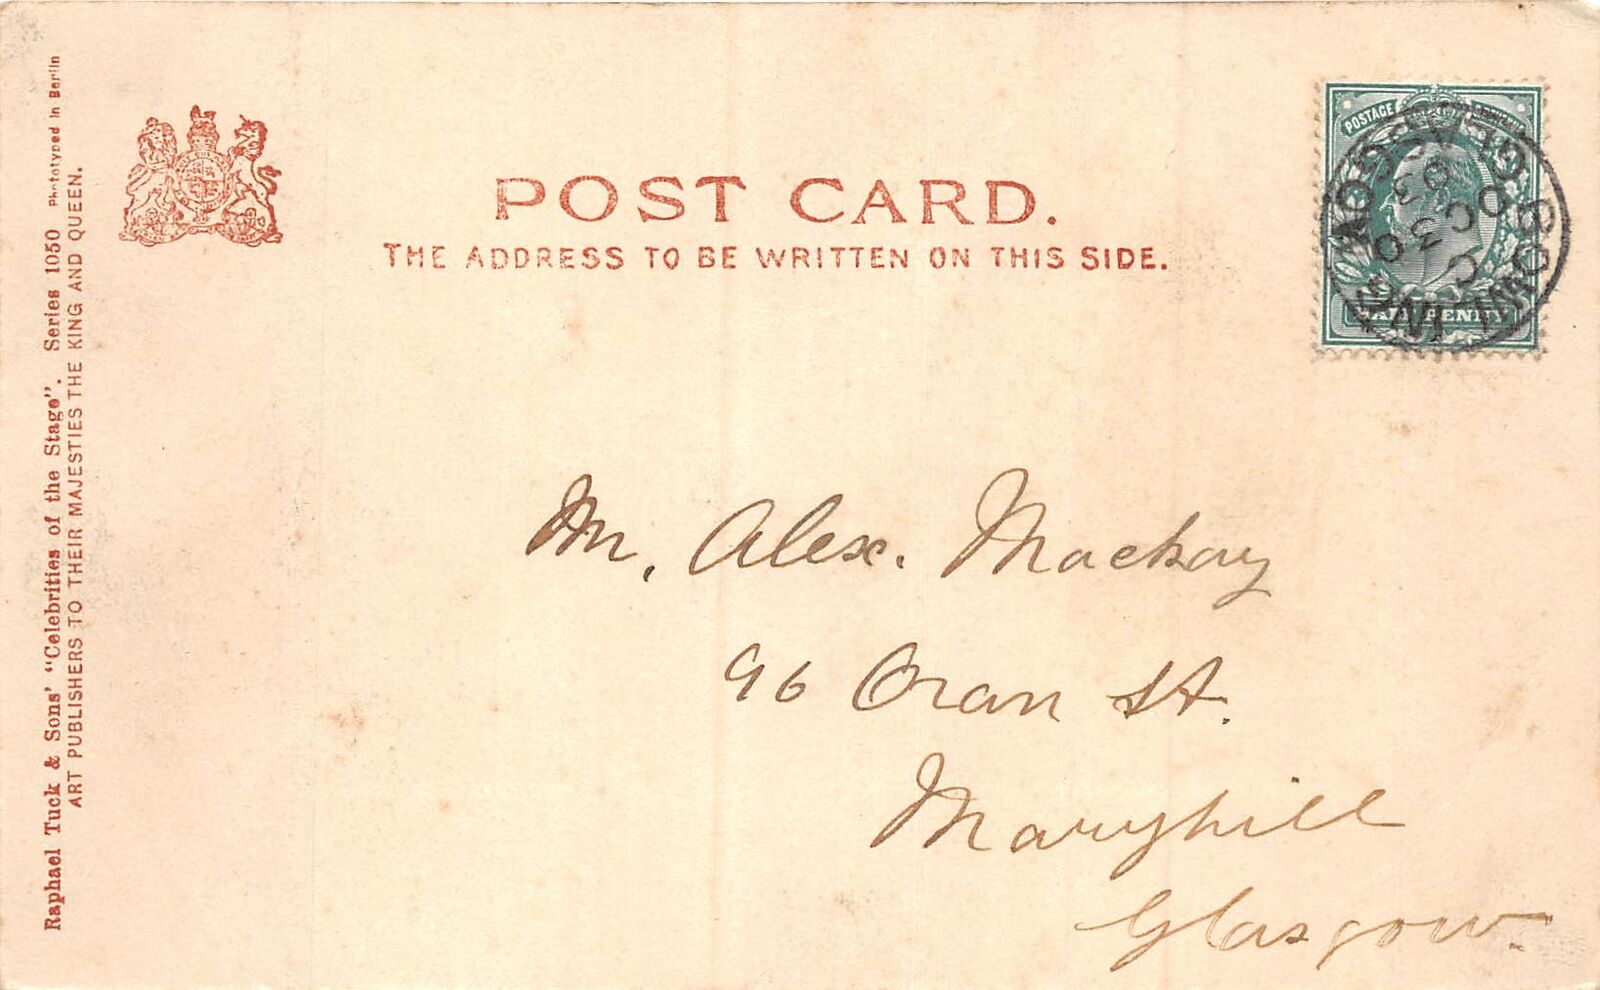 Raphael Tuck & Sons' "Celebrities of the Stage". Series 1050 Phototyped in Berlin
ART PUBLISHERS TO THEIR MAJESTIES THE KING AND QUEEN.
POST CARD.
THE ADDRESS TO BE WRITTEN ON THIS SIDE.
POSTAGE
HALFPENNY
GLASGOW
OC 30
03
Mr. Alex. Mackay
96 Oran St.
Maryhill
Glasgow.